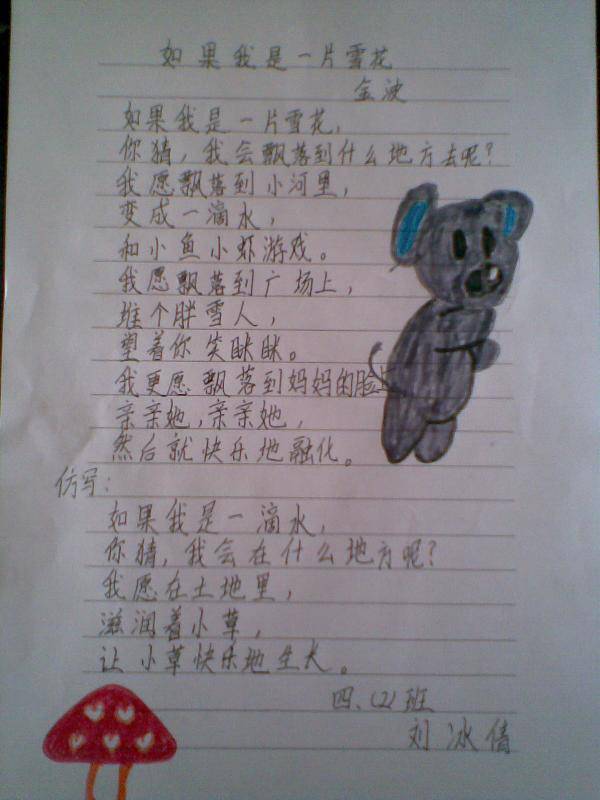 如果我是一片雪花
金波
如果我是一片雪花，
你猜，我会飘落到什么地方去呢？
我愿飘落到小河里，
变成一滴水，
和小鱼小虾游戏。
我愿飘落到广场上，
堆个胖雪人，
望着你笑眯眯。
我更愿飘落到妈妈的脸上
亲亲她，亲亲她，
然后就快乐地融化。
仿写：
如果我是一滴水，
你猜，我会在什么地方呢？
我愿在土地里，
滋润着小草，
让小草快乐地生长。
四、(2)班
刘冰倩